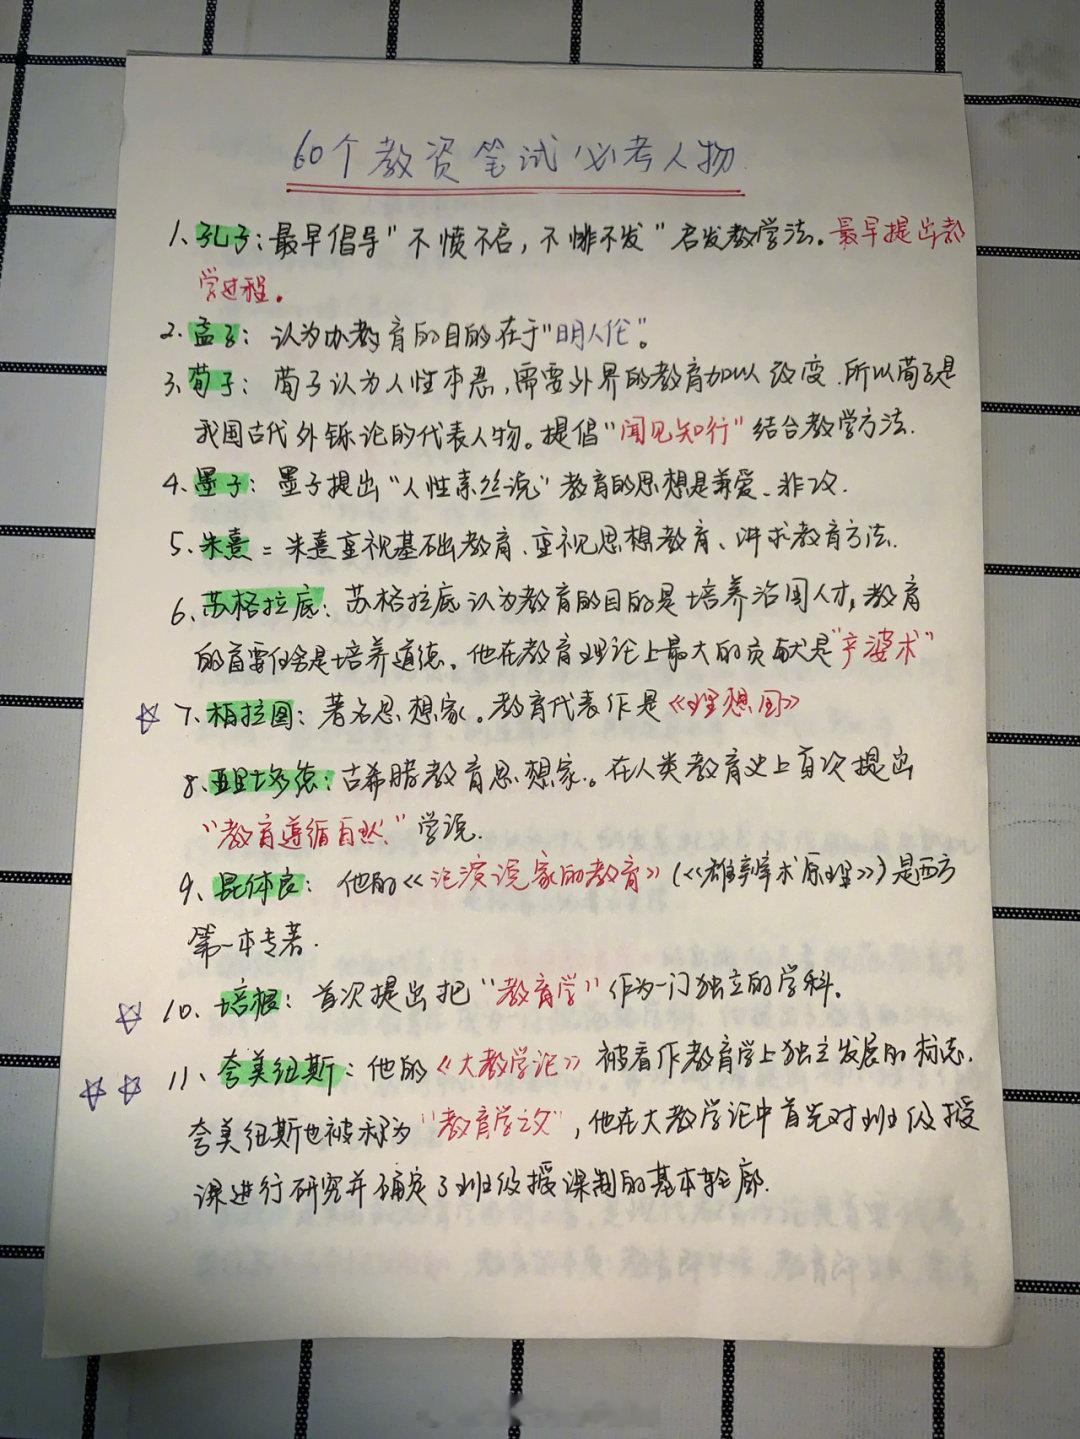 60个教资笔试必考人物
1、孔子：最早倡导"不愤不启，不悱不发"启发教学法。最早提出教
学过程。
2、孟子：认为办教育的目的在于"明人伦"。
3、荀子：荀子认为人性本恶，需要外界的教育加以改变.所以荀子是
我国古代外铄论的代表人物。提倡"闻见知行"结合教学方法.
4、墨子：墨子提出"人性素丝说"教育的思想是兼爱、非攻.
5、朱熹：朱熹重视基础教育、重视思想教育、讲求教育方法.
6、苏格拉底：苏格拉底认为教育的目的是培养治国人才，教育
的首要任务是培养道德。他在教育理论上最大的贡献是"产婆术"
7、柏拉图：著名思想家。教育代表作是《理想国》
8、亚里士多德：古希腊教育思想家。在人类教育史上首次提出
"教育遵循自然"学说.
9、昆体良：他的《论演说家的教育》(《雄辩术原理》)是西方
第一本专著.
10、培根：首次提出把"教育学"作为一门独立的学科.
11、夸美纽斯：他的《大教学论》被看作教育学上独立发展的标志.
夸美纽斯也被称为"教育学之父"，他在大教学论中首先对班级授
课进行研究并确定了班级授课制的基本轮廓.